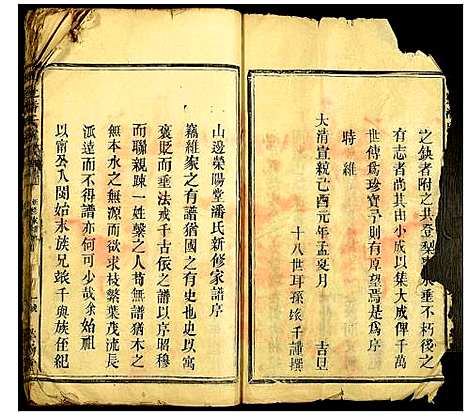 之缺者附之共登梨 永垂不朽後之
有志者尚其由小成以集大成俾千萬
世傳為珍寶予則有厚望焉是為序
時維
大清宣統己酉元年孟夏月 吉旦
十八世耳孫 千謹撰
山邊榮陽堂潘氏新修家譜序
竊維家之有譜猶國之有史也史以寓
褒貶而垂法戒千古依之譜以序昭穆
而聯親疎一姓繫之人苟無譜猶木之
無本水之無源而欲求枝繁葉茂流長
派遠而不得譜亦何可少哉余始祖
以南公入閩始末族兄 千與族侄紀